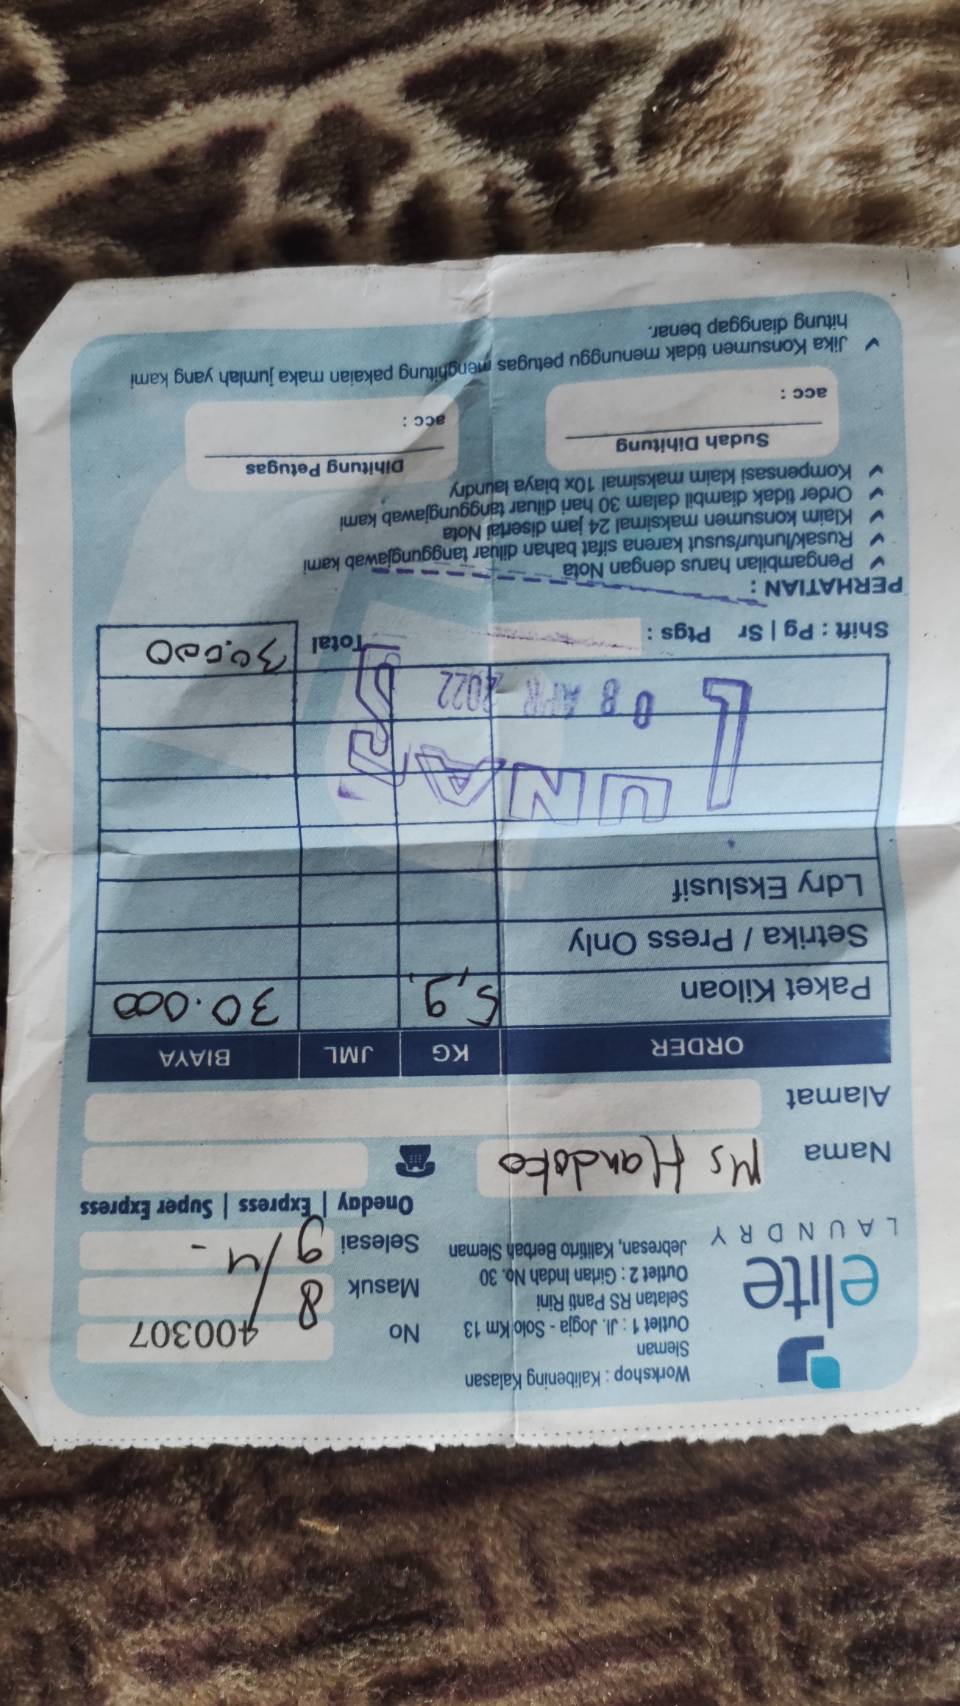 elite
LAUNDRY
Workshop : Kalibening Kalasan
Sleman
Outlet 1 : Jl. Jogja - Solo Km 13
Selatan RS Panti Rini
Outlet 2 : Girian Indah No. 30
Jebresan, Kalitirto Berbah Sleman
No 400307
Masuk 8/4
Selesai 9 -
Oneday | Express | Super Express
Nama Ms Handoko
Alamat
ORDER KG JML BIAYA
Paket Kiloan 5,9 30.000
Setrika / Press Only
Ldry Ekslusif
LUNAS
08 APR 2022
Shift : Pg | Sr Ptgs : Total 30.000
PERHATIAN :
✓ Pengambilan harus dengan Nota
✓ Rusak/luntur/susut karena sifat bahan diluar tanggungjawab kami
✓ Klaim konsumen maksimal 24 jam disertai Nota
✓ Order tidak diambil dalam 30 hari diluar tanggungjawab kami
✓ Kompensasi klaim maksimal 10x biaya laundry
Sudah Dihitung Dihitung Petugas
acc : acc :
✓ Jika Konsumen tidak menunggu petugas menghitung pakaian maka jumlah yang kami
hitung dianggap benar.